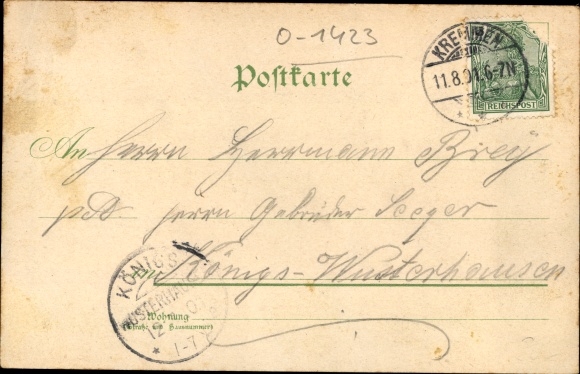 O-1423
KREMMEN
11.8.01.6-7N
REICHSPOST
Postkarte
An Herrn Herrmann Brey
pdt. Herrn Gebrüder Seeger
in Königs-Wusterhausen
KÖNIGS
WUSTERHAUSEN
12
1-7
Wohnung
(Straße und Hausnummer)